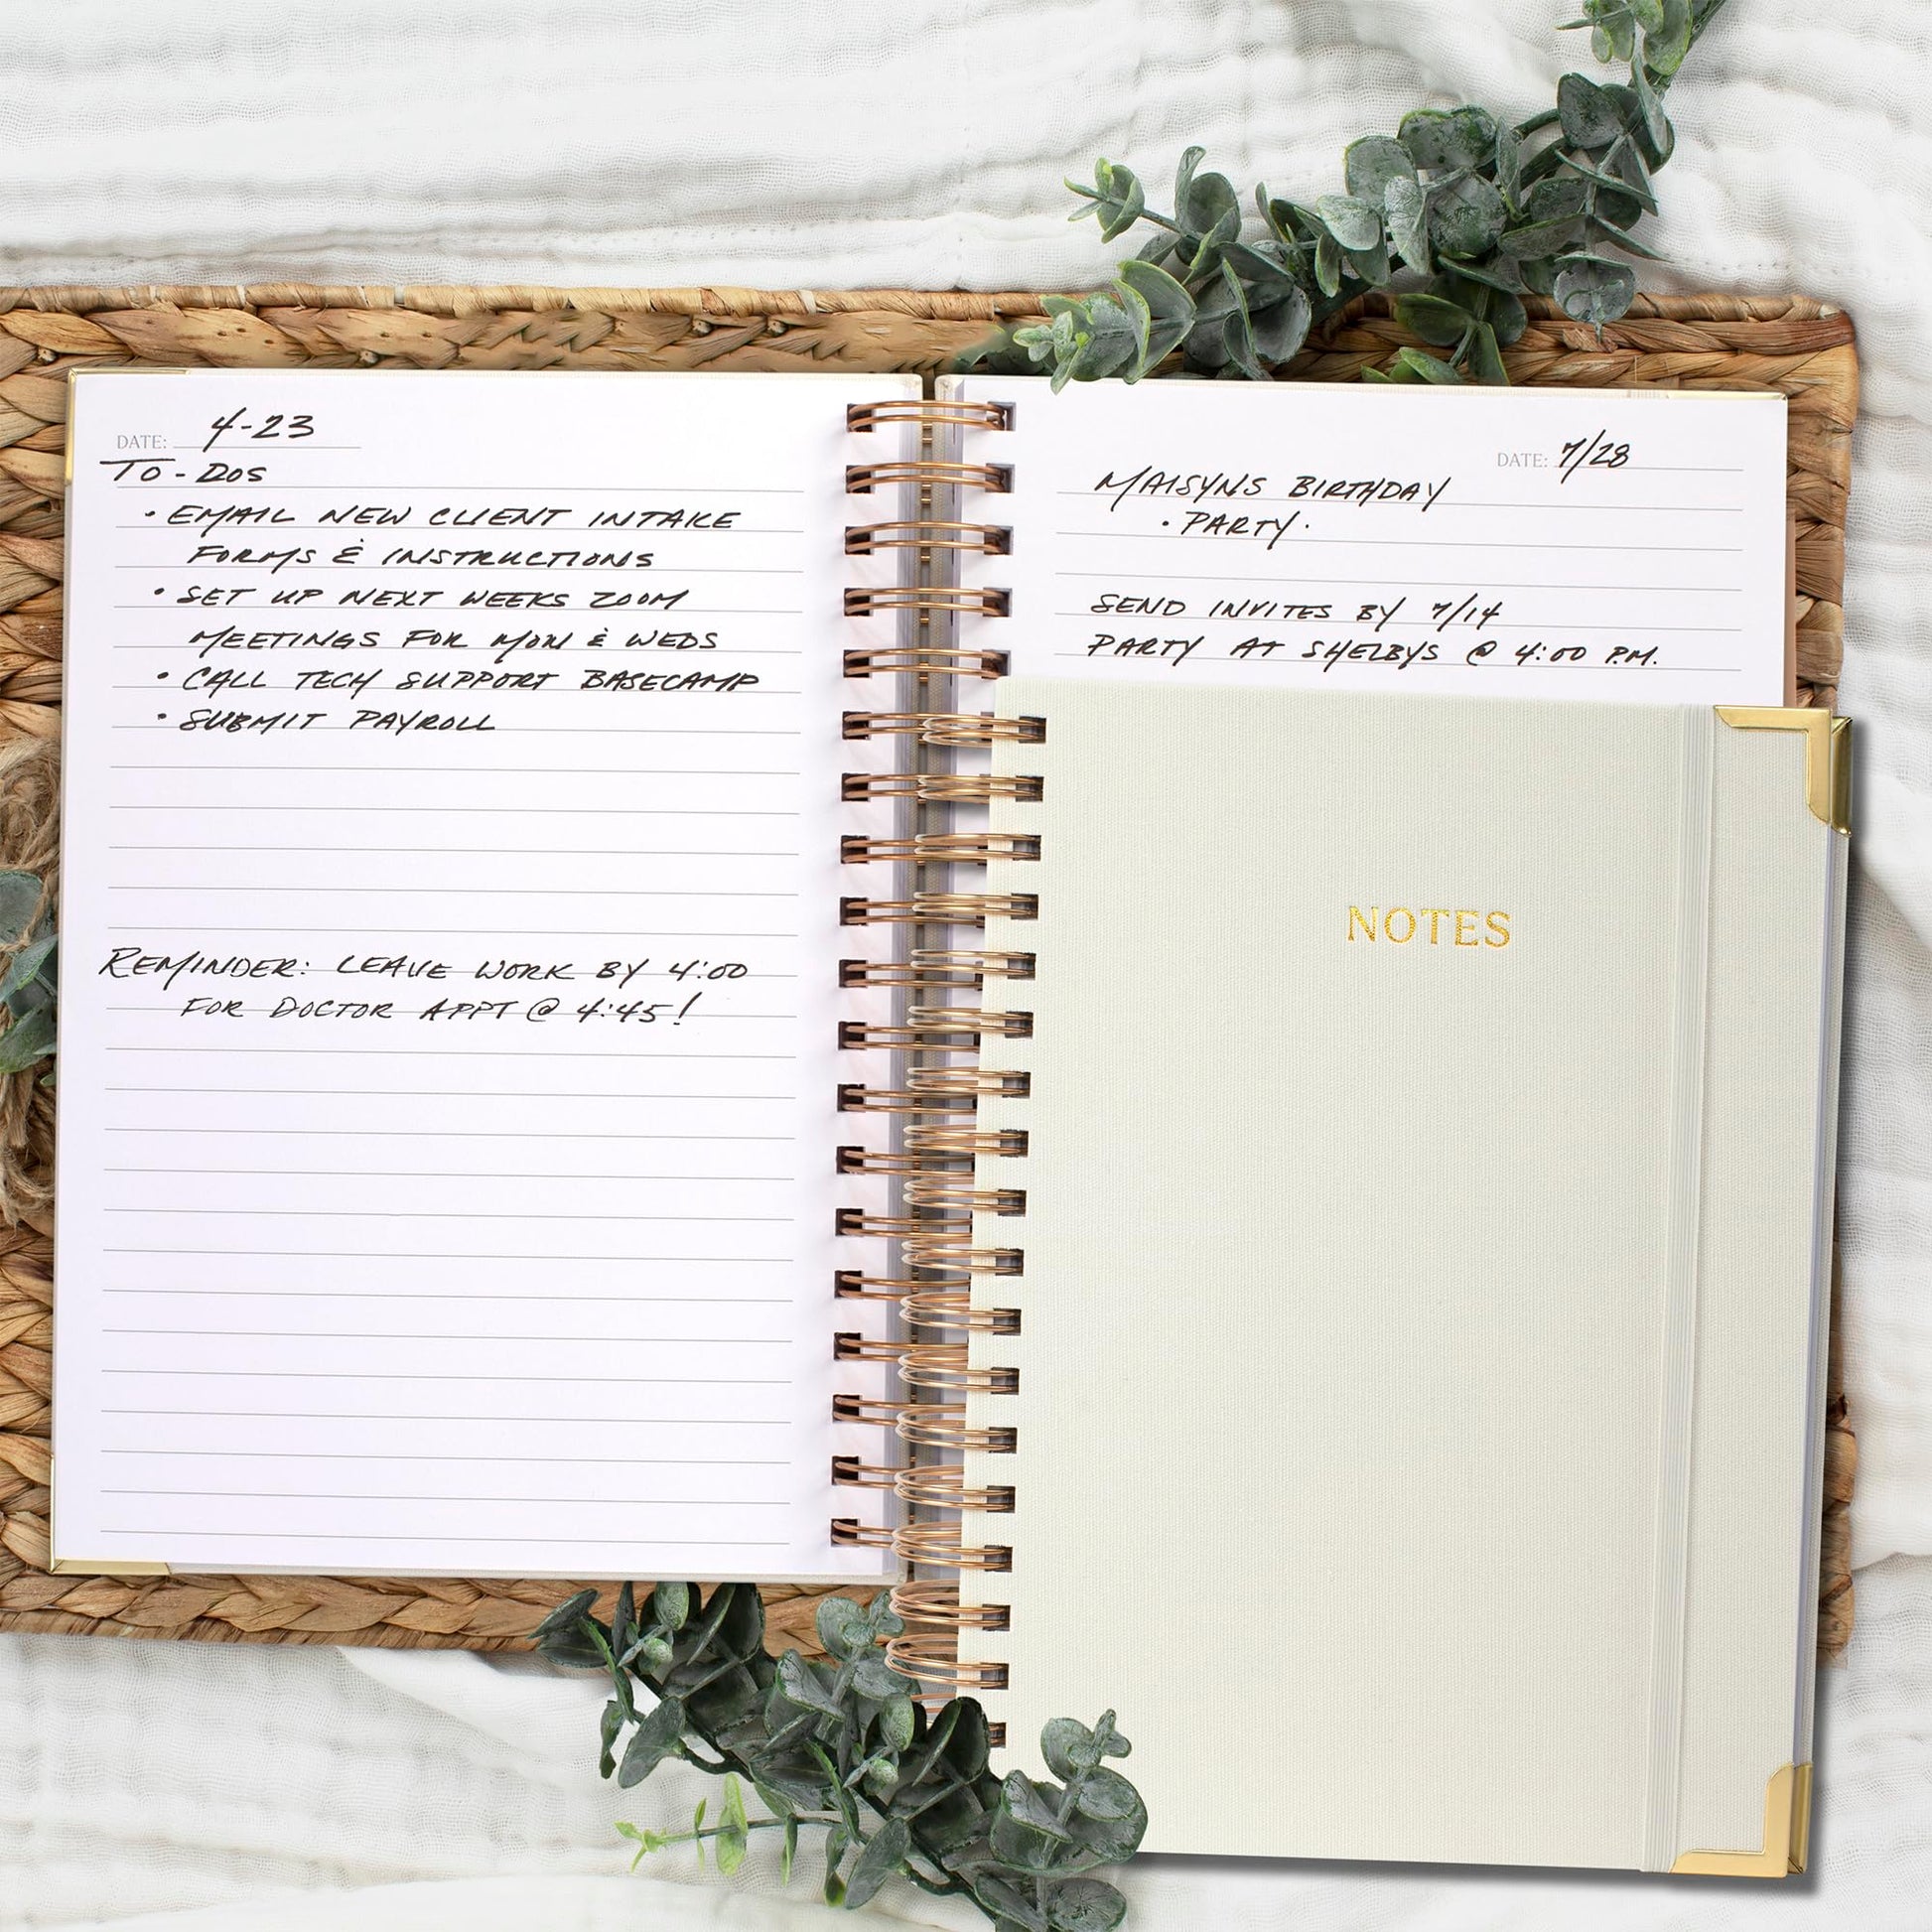 DATE: 4-23
TO-DOS
• EMAIL NEW CLIENT INTAKE
FORMS & INSTRUCTIONS
• SET UP NEXT WEEKS ZOOM
MEETINGS FOR MON & WEDS
• CALL TECH SUPPORT BASECAMP
• SUBMIT PAYROLL
REMINDER: LEAVE WORK BY 4:00
FOR DOCTOR APPT @ 4:45!
DATE: 7/28
MAISYNS BIRTHDAY
• PARTY •
SEND INVITES BY 7/14
PARTY AT SHELBYS @ 4:00 P.M.
NOTES